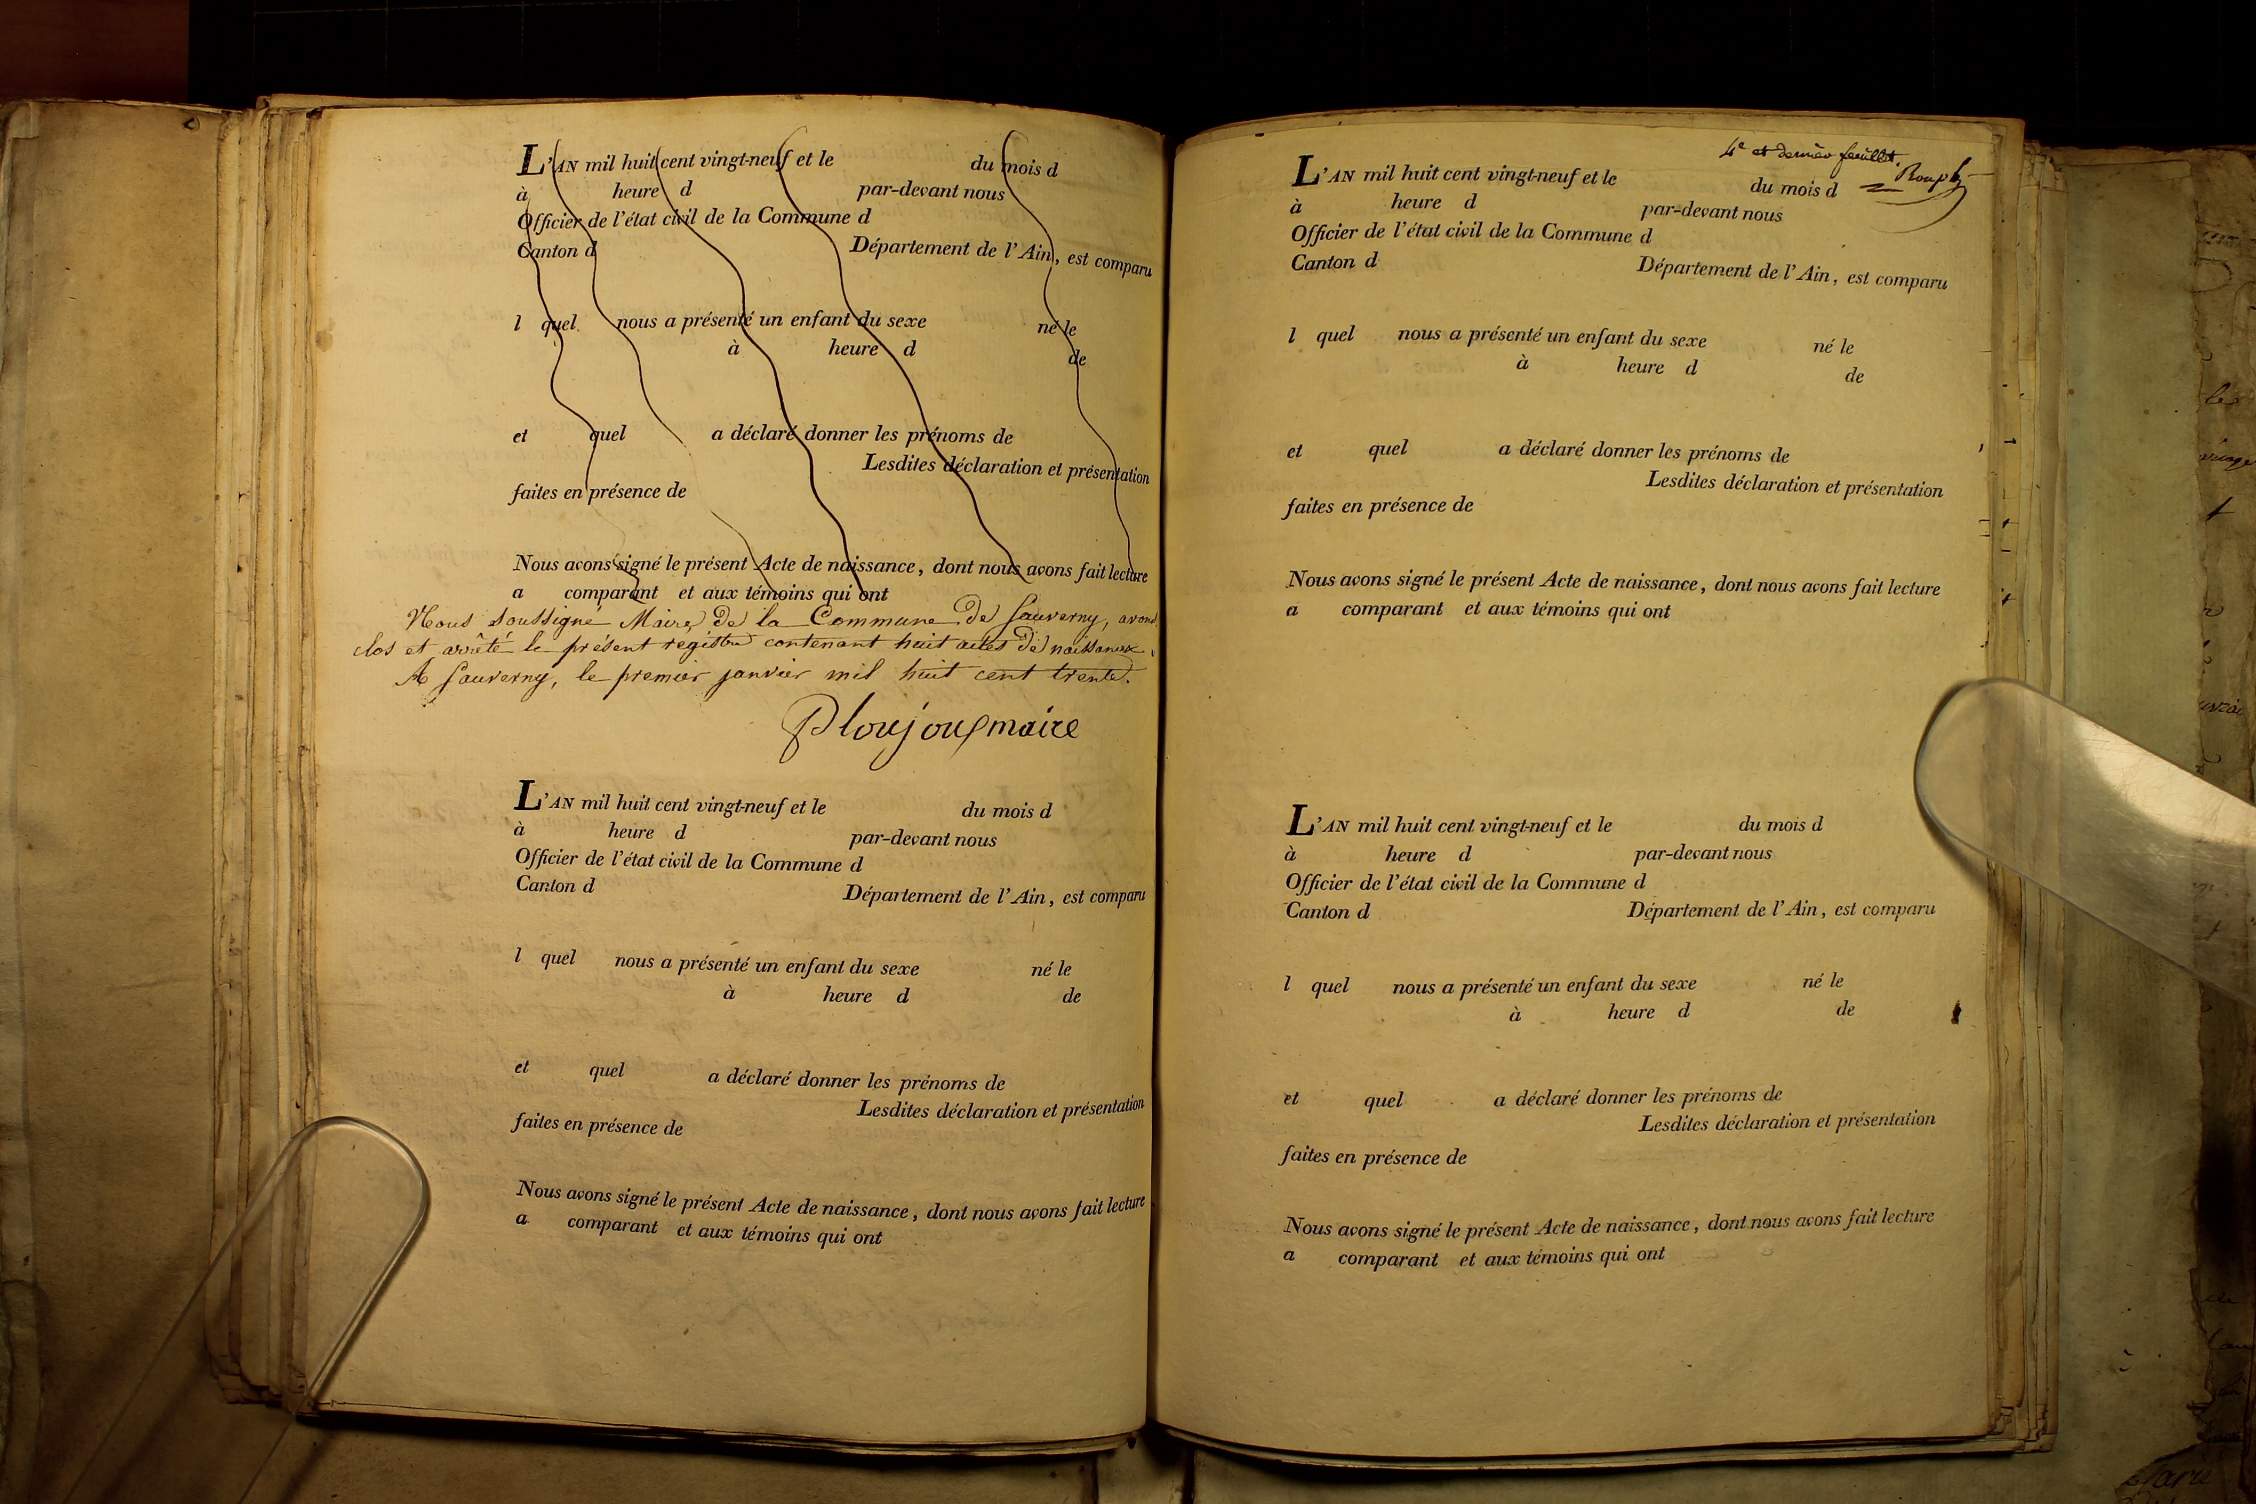 L'AN mil huit cent vingt-neuf et le du mois d
à heure d par-devant nous
Officier de l'état civil de la Commune d
Canton d Département de l'Ain, est comparu
l quel nous a présenté un enfant du sexe né le
à heure d de
et quel a déclaré donner les prénoms de
Lesdites déclaration et présentation
faites en présence de
Nous avons signé le présent Acte de naissance, dont nous avons fait lecture
a comparant et aux témoins qui ont
Nous soussigné Maire de la Commune de Sauverny, avons
clos et arrêté le présent registre contenant huit actes de naissance.
A Sauverny, le premier janvier mil huit cent trente.
maire
L'AN mil huit cent vingt-neuf et le du mois d
à heure d par-devant nous
Officier de l'état civil de la Commune d
Canton d Département de l'Ain, est comparu
l quel nous a présenté un enfant du sexe né le
à heure d de
et quel a déclaré donner les prénoms de
Lesdites déclaration et présentation
faites en présence de
Nous avons signé le présent Acte de naissance, dont nous avons fait lecture
a comparant et aux témoins qui ont
4e et dernier feuillet.
L'AN mil huit cent vingt-neuf et le du mois d
à heure d par-devant nous
Officier de l'état civil de la Commune d
Canton d Département de l'Ain, est comparu
l quel nous a présenté un enfant du sexe né le
à heure d de
et quel a déclaré donner les prénoms de
Lesdites déclaration et présentation
faites en présence de
Nous avons signé le présent Acte de naissance, dont nous avons fait lecture
a comparant et aux témoins qui ont
L'AN mil huit cent vingt-neuf et le du mois d
à heure d par-devant nous
Officier de l'état civil de la Commune d
Canton d Département de l'Ain, est comparu
l quel nous a présenté un enfant du sexe né le
à heure d de
et quel a déclaré donner les prénoms de
Lesdites déclaration et présentation
faites en présence de
Nous avons signé le présent Acte de naissance, dont nous avons fait lecture
a comparant et aux témoins qui ont